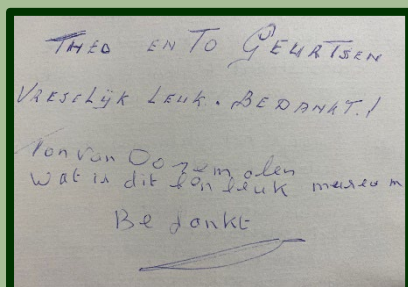 THEO EN TO GEURTSEN
VREESELIJK LEUK. BEDANKT!
Ton van
wat is dit een leuk museum
Bedankt